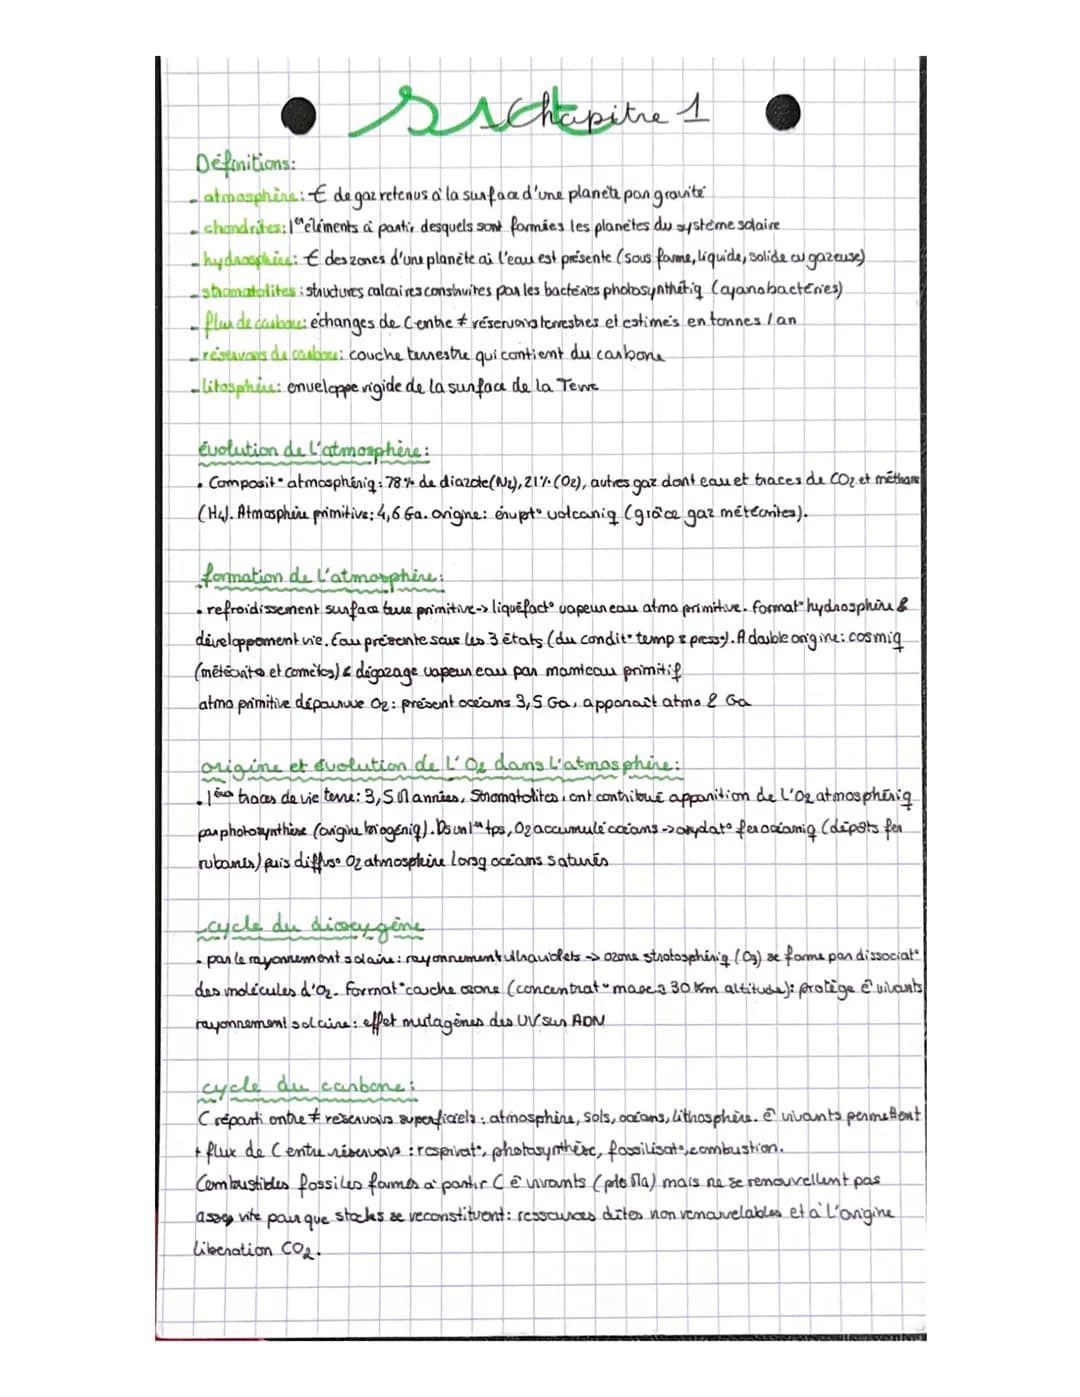 Chapitre 1
Définitions:
- atmosphère: € de gaz retenus à la surface d'une planète par gravité
- chondrites: 1ers éléments à partir desquels sont formées les planètes du système solaire
- hydrosphère: € des zones d'une planète où l'eau est présente (sous forme, liquide, solide ou gazeuse)
- stromatolites: structures calcaires construites par les bactéries photosynthétiq (cyanobactéries)
- flux de carbone: échanges de C entre ≠ réservoirs terrestres et estimés en tonnes / an
- réservoirs de carbone: couche terrestre qui contient du carbone
- litosphère: enveloppe rigide de la surface de la Terre
évolution de l'atmosphère:
• Composit° atmosphériq: 78% de diazote (N2), 21% (O2), autres gaz dont eau et traces de CO2 et méthane
(H4). Atmosphère primitive: 4,6 Ga. origine: érupt° volcaniq (grâce gaz météorites).
formation de l'atmosphère:
• refroidissement surface terre primitive -> liquéfact° vapeur eau atmo primitive. format° hydrosphère &
développement vie. Eau présente sous les 3 états (du condit° temp & press°). A double origine: cosmiq
(météorite et comètes) & dégazage vapeur eau par manteau primitif
atmo primitive dépourvue O2: présent océans 3,5 Ga, apparait atmo 2 Ga
origine et évolution de l'O2 dans l'atmosphère:
• 1ères traces de vie terre: 3,5 M années, Stromatolites ont contribué apparition de l'O2 atmosphériq
par photosynthèse (origine biogéniq). Ds un 1er tps, O2 accumulé océans -> oxydat° fer océaniq (dépôts fer
rubanés) puis diffus° O2 atmosphère lorsq océans saturés
cycle du dioxygène
• par le rayonnement solaire: rayonnement ultraviolets -> ozone stratosphériq (O3) se forme par dissociat°
des molécules d'O2. Format° couche ozone (concentrat° max à 30 km altitude): protège ê vivants
rayonnement solaire: effet mutagènes des UV sur ADN
cycle du carbone:
C réparti entre ≠ réservoirs superficiels: atmosphère, sols, océans, lithosphère. ê vivants permettent
+ flux de C entre réservoirs: respirat°, photosynthèse, fossilisat°, combustion.
Combustibles fossiles formés à partir C ê vivants (plrs Ma) mais ne se renouvellent pas
assez vite pour que stocks se reconstituent: ressources dites non renouvelables et à l'origine
libération CO2.